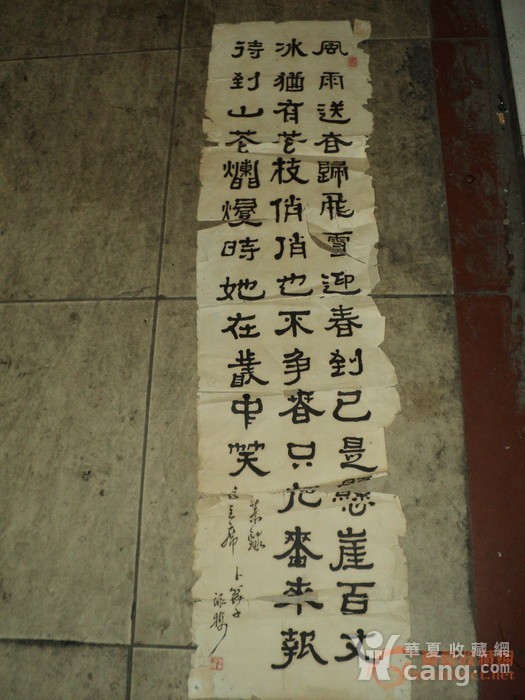 風雨送春歸飛雪迎春到已是懸崖百丈
冰猶有花枝俏俏也不争春只把春来報
待到山花爛熳時她在叢中笑
主席 卜算子
詠梅
華夏收藏網
cang.com